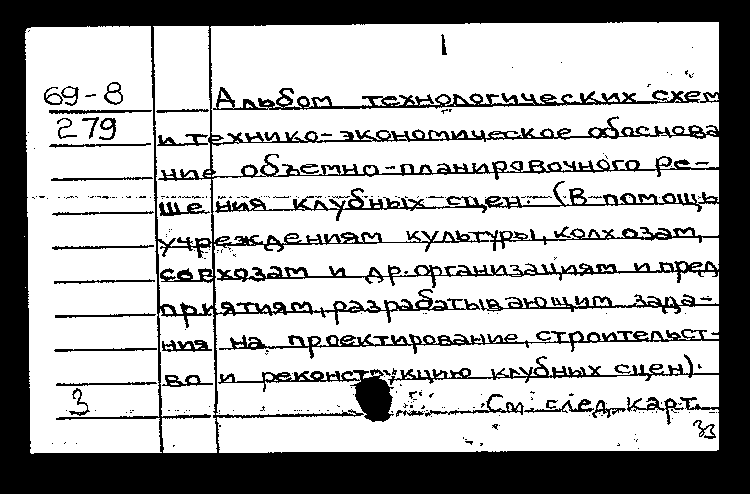 1
69-8 Альбом технологических схем
279 и технико-экономическое обоснова
ние объемно-планировочного ре-
шения клубных сцен. (В помощь
учреждениям культуры, колхозам,
совхозам и др. организациям и пред
приятиям, разрабатывающим зада-
ния на проектирование, строительст-
во и реконструкцию клубных сцен).
3 См след. карт.
33